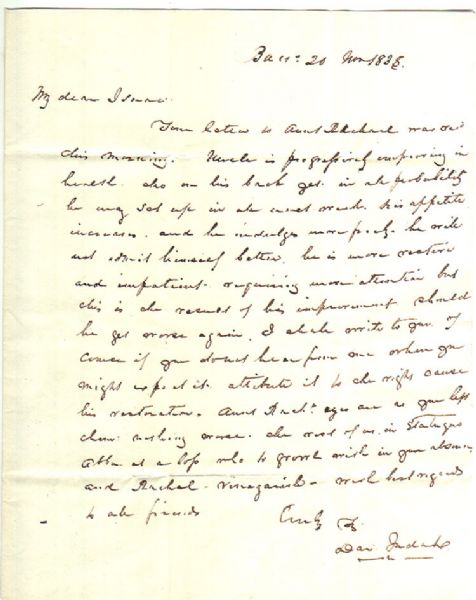 20 Nov 1838.
My dear Isaac
Your letter to Aunt Rachael was rec
this morning. Uncle is progressively improving in
health. tho on his back yet. in all probability
he may set up in all next week. his appetite
increases. and he indulges more freely. he will
not admit himself better. he is more restive
and impatient. requiring more attention but
this is the result of his improvement should
he get worse again, I shall write to you of
course if you do not hear from me when you
might expect it. attribute it to the right cause
his restoration. Aunt Rach.ls eyes are as you left
them. nothing worse. the rest of us in
are at a loss who to growl with in your absence
and Rachel. Vinegarish - with best regards
to all friends
Judah